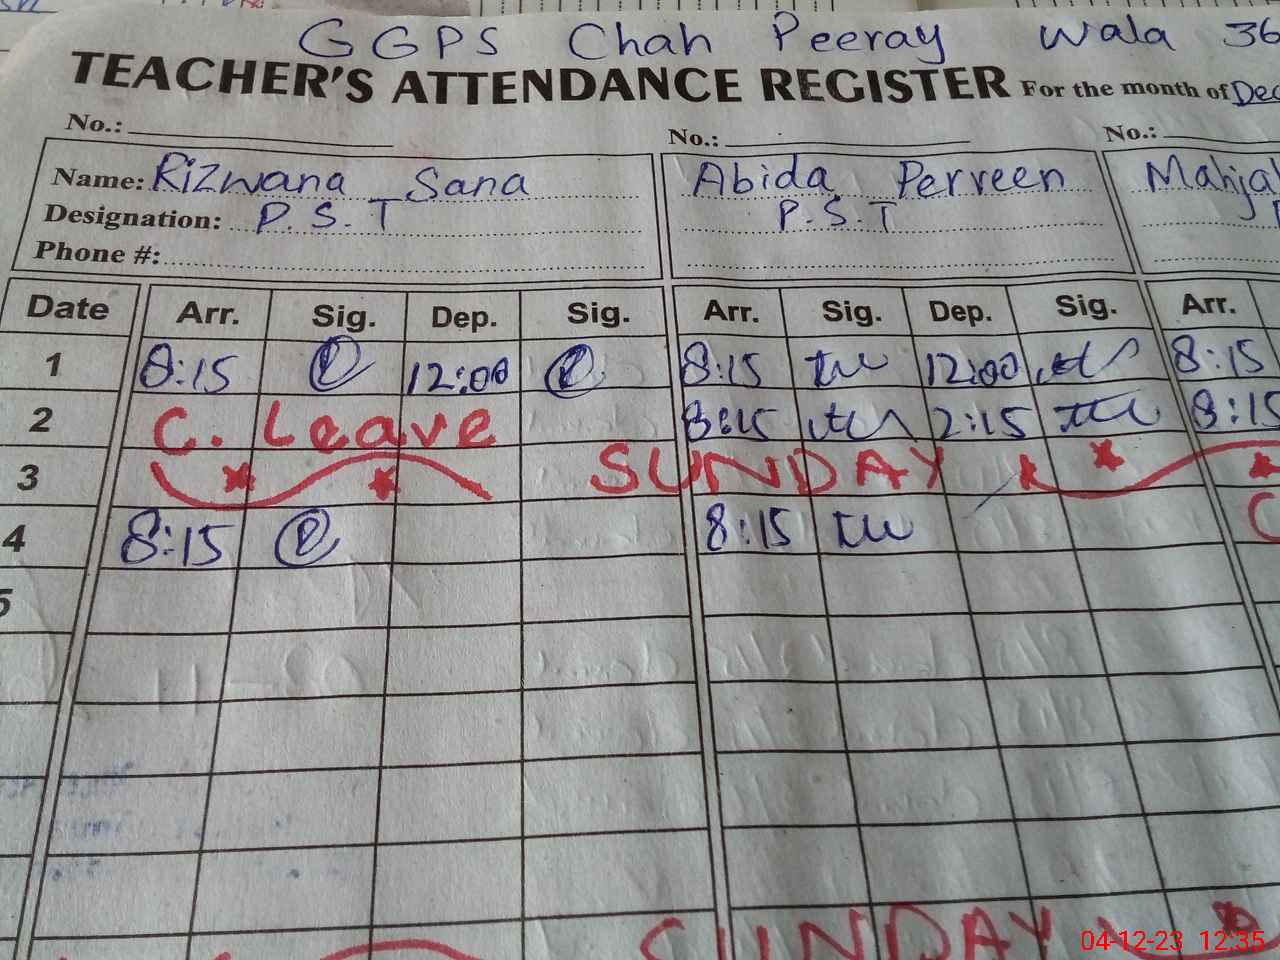 GGPS Chah Peeray Wala 36
TEACHER'S ATTENDANCE REGISTER For the month of Dec
No.: No.: No.:
Name: Rizwana Sana Abida Perveen
Designation: P.S.T P.S.T
Phone #:
Date Arr. Sig. Dep. Sig. Arr. Sig. Dep. Sig. Arr.
1 8:15 12:00 8:15 12:00 8:15
2 C. Leave 8:15 2:15 8:15
3 SUNDAY
4 8:15 8:15 C
5
SUNDAY
04-12-23 12:35